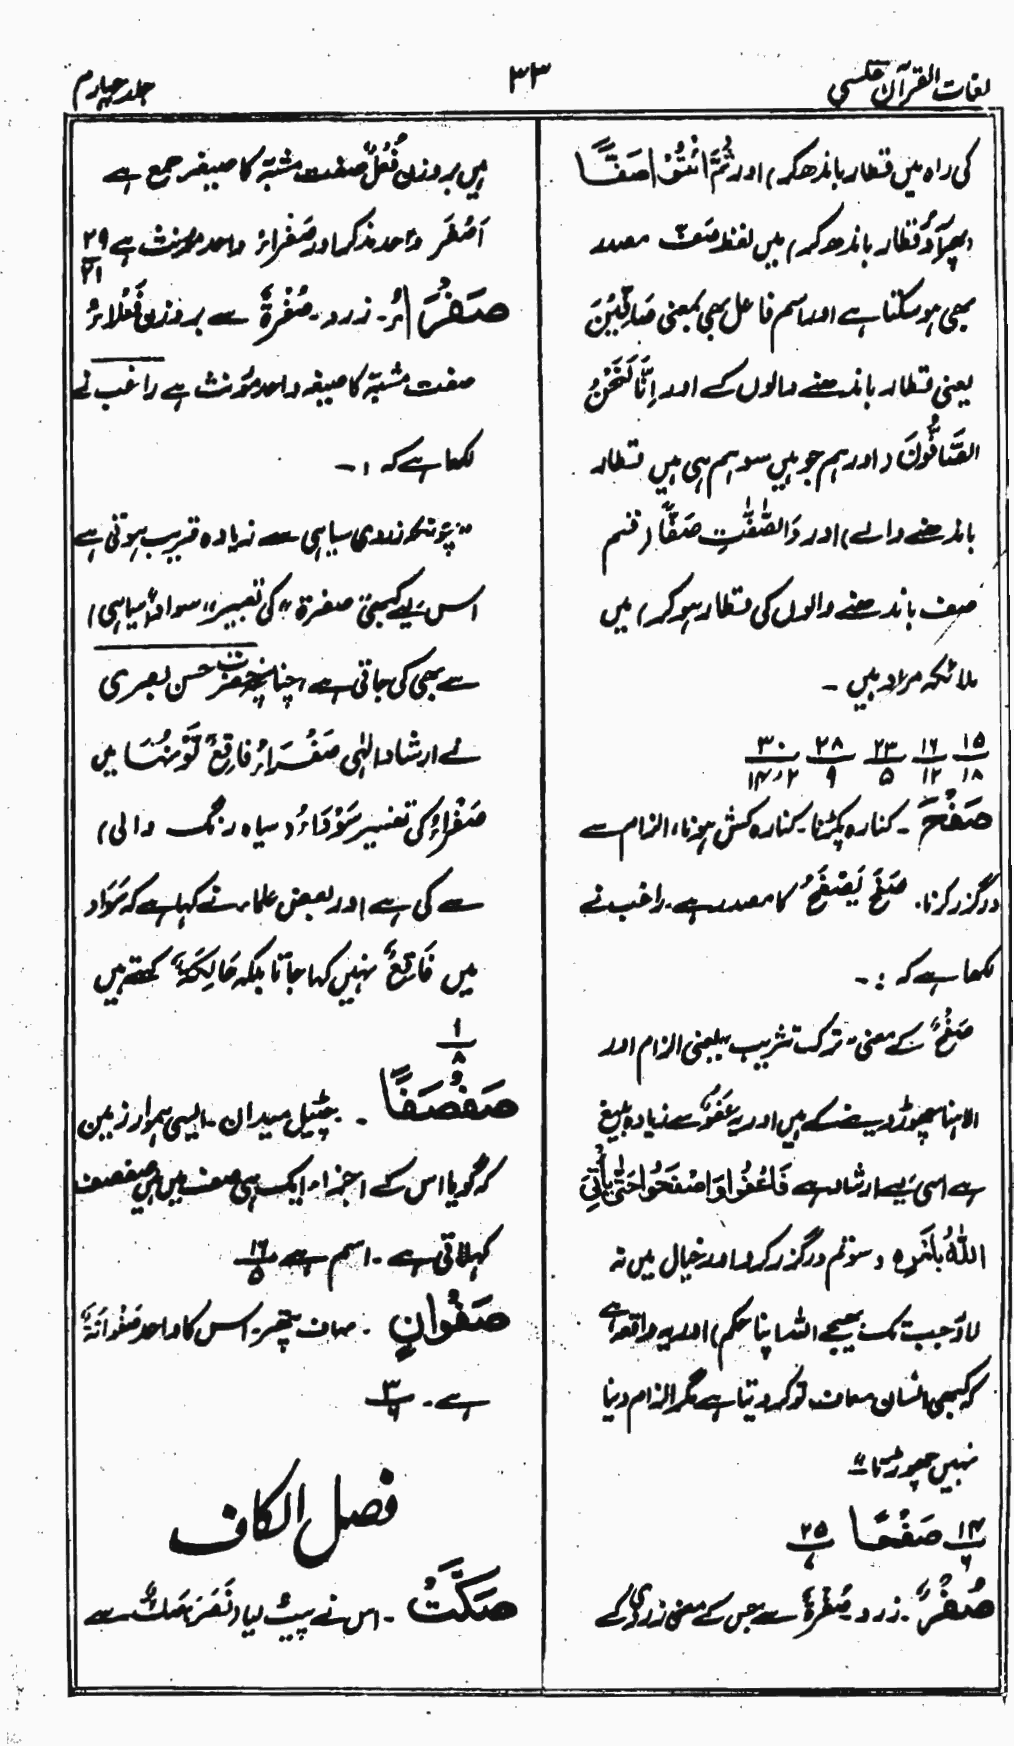 لغات القرآن عکسی
۳۳
جلد چہارم
کی راہ میں قطار باندھ کر) اور ثُمَّ ائْتُوْا صَفًّا
(پھر آؤ قطار باندھ کر) میں لفظ صَفّ مصدر
بھی ہو سکتا ہے اور اسم فاعل بھی بمعنی صَافِّیْنَ
یعنی قطار باندھنے والوں کے اور اِنَّا لَنَحْنُ
الصَّافُّوْنَ (اور ہم جو ہیں سو ہم ہی ہیں قطار
باندھنے والے) اور وَالصّٰٓفّٰتِ صَفًّا (قسم
صف باندھنے والوں کی قطار ہو کر) میں
ملائکہ مراد ہیں ۔
۱۵/۱۸ ۱۶/۱۲ ۲۳/۵ ۲۸/۹ ۳۰/۲،۱۴
صَفْحَ ۔ کنارہ پکڑنا ۔ کنارہ کش ہونا، الزام سے
درگزر کرنا ۔ صَفَحَ یَصْفَحُ کا مصدر ہے ۔ راغب نے
لکھا ہے کہ :۔
صَفْحٌ کے معنی " ترک تثریب " یعنی الزام اور
الاہنا چھوڑ دینے کے ہیں اور یہ عَفْوٌ سے زیادہ بلیغ
ہے اسی لیے ارشاد ہے فَاعْفُوْا وَاصْفَحُوْا حَتّٰی یَاْتِیَ
اللّٰهُ بِاَمْرِهٖ (سو تم درگزر کرو اور خیال میں نہ
لاؤ جب تک بھیجے اللہ اپنا حکم) اور یہ واقعہ ہے
کہ کبھی انسان معاف تو کر دیتا ہے مگر الزام دینا
نہیں چھوڑتا "
۱۴/۶ صَفْحًا ۲۵/۷
صُفْرٌ ۔ زرد ۔ صُفْرَةٌ سے جس کے معنی زردی کے
ہیں بر وزن فُعْلٌ صفت مشبہ کا صیغہ جمع ہے
اَصْفَر واحد مذکر اور صَفْرَاءُ واحد مؤنث ہے ۲۹/۲۱
صَفْرَاءُ ۔ زرد ۔ صُفْرَةٌ سے بر وزن فَعْلَاءُ
صفت مشبہ کا صیغہ واحد مؤنث ہے راغب نے
لکھا ہے کہ :۔
" چونکہ زردی سیاہی سے زیادہ قریب ہوتی ہے
اس لیے کبھی صفرة " کی تعبیر " سواد" (سیاہی)
سے بھی کی جاتی ہے، چنانچہ حضرت حسن بصری
نے ارشاد الٰہی صَفْرَاءُ فَاقِعٌ لَّوْنُهَا میں
صَفْرَاءُ کی تفسیر سَوْدَاءُ (سیاہ رنگ والی)
سے کی ہے اور بعض علماء نے کہا ہے کہ سَوَاد
میں فَاقِعٌ نہیں کہا جاتا بلکہ حَالِكَةٌ کہتے ہیں
۱/۸
صَفْصَفًا ۔ چٹیل میدان ۔ ایسی ہموار زمین
کہ گویا اس کے اجزاء ایک ہی صف میں ہیں صفصف
کہلاتی ہے ۔ اسم ہے ۱۶/۵
صَفْوَانٍ ۔ صاف پتھر ۔ اس کا واحد صَفْوَانَةٌ
ہے ۔ ۳/۴
فصل الکاف
صَكَّتْ ۔ اس نے پیٹ لیا (نَصَرَ) صَكٌّ سے